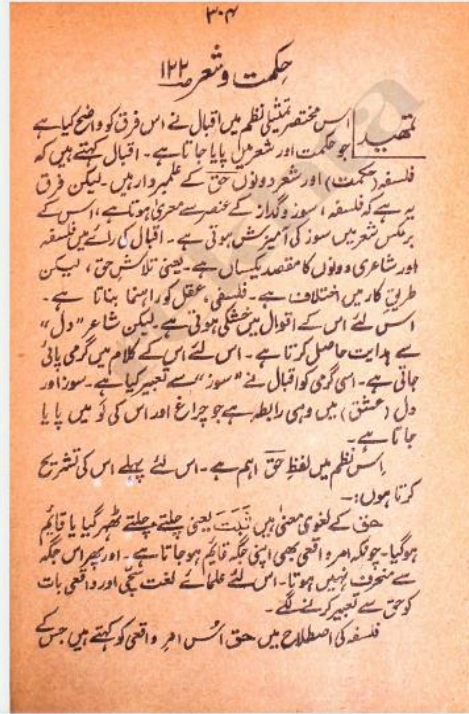 ۳۰۴
حکمت و شعر ص ۱۲۲
تمہید
اس مختصر تمثیلی نظم میں اقبال نے اس فرق کو واضح کیا ہے
جو حکمت اور شعر میں پایا جاتا ہے۔ اقبال کہتے ہیں کہ
فلسفہ (حکمت) اور شعر دونوں حق کے علمبردار ہیں۔ لیکن فرق
یہ ہے کہ فلسفہ، سوز و گداز کے عنصر سے معریٰ ہوتا ہے، اس کے
برعکس شعر میں سوز کی آمیزش ہوتی ہے۔ اقبال کی رائے میں فلسفہ
اور شاعری دونوں کا مقصد یکساں ہے۔ یعنی تلاشِ حق، لیکن
طریقِ کار میں اختلاف ہے۔ فلسفی، عقل کو راہنما بناتا ہے۔
اس لئے اس کے اقوال میں خشکی ہوتی ہے۔ لیکن شاعر "دل"
سے ہدایت حاصل کرتا ہے۔ اس لئے اس کے کلام میں گرمی پائی
جاتی ہے۔ اسی گرمی کو اقبال نے "سوز" سے تعبیر کیا ہے۔ سوز اور
دل (عشق) میں وہی رابطہ ہے جو چراغ اور اس کی لَو میں پایا
جاتا ہے۔
اس نظم میں لفظِ حق اہم ہے۔ اس لئے پہلے اس کی تشریح
کرتا ہوں:۔
حق کے لغوی معنیٰ ہیں ثَبَتَ یعنی چلتے چلتے ٹھہر گیا یا قایٔم
ہو گیا۔ چونکہ امرِ واقعی بھی اپنی جگہ قایٔم ہو جاتا ہے۔ اور پھر اس جگہ
سے منحرف نہیں ہوتا۔ اس لئے علمائے لغت سچّی اور واقعی بات
کو حق سے تعبیر کرنے لگے۔
فلسفہ کی اصطلاح میں حق اُس امرِ واقعی کو کہتے ہیں جس کے